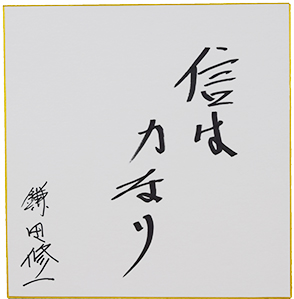 信は
力なり
鎌田修一